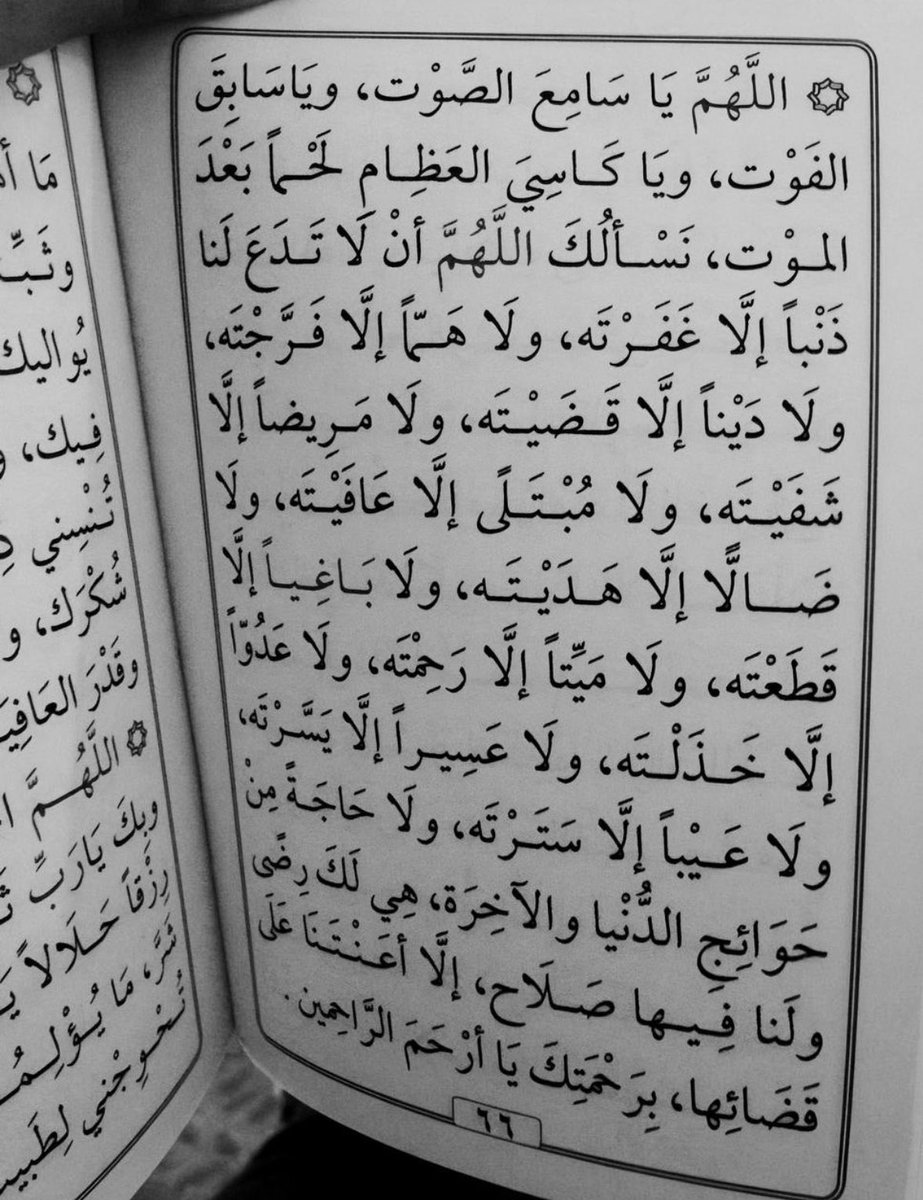 اللَّهُمَّ يَا سَامِعَ الصَّوْت، ويَاسَابِقَ
الفَوْت، ويَا كَـاسِيَ العَظِـام لَحْـماً بَعْدَ
المـوْت، نَسْـألُكَ اللَّهُمَّ أنْ لَا تَـدَعَ لَنا
ذَنْباً إلَّا غَفَـرْتَه، ولَا هَـمّاً إلَّا فَـرَّجْتَه،
ولَا دَيْناً إلَّا قَـضَيْـتَه، ولَا مَـرِيضاً إلَّا
شَفَيْـتَه، ولَا مُبْـتَـلًى إلَّا عَافَيْـتَه، ولَا
ضَـــالًّا إلَّا هَـدَيْـتَـه، ولَا بَـاغِـيـاً إلَّا
قَطَعْتَه، ولَا مَيِّتاً إلَّا رَحِمْتَه، ولَا عَدُوّاً
إلَّا خَـذَلْـتَه، ولَا عَسِـيراً إلَّا يَسَّـرْتَه،
ولَا عَـيْباً إلَّا سَتَـرْتَه، ولَا حَاجَـةً مِنْ
حَوَائِجِ الدُّنْيا والآخِرَة، هِي لَكَ رِضًى
ولَنا فِـيـها صَـلَاح، إلَّا أعَـنْـتَـنَا عَلَى
قَضَائِها، بِرَحْمَتِكَ يَا أرْحَمَ الرَّاحِمِين.
٦٦
يُواليك
فِـيك،
تُـنْسِـني
شُكْرَك، و
وقَدْرَ العَافِيَـ
اللَّهُـــمَّ
وبِكَ يَارَبِّ
رِزْقاً حَـلَالاً
شَرَّ، مَا يُـؤْلِـمُـ